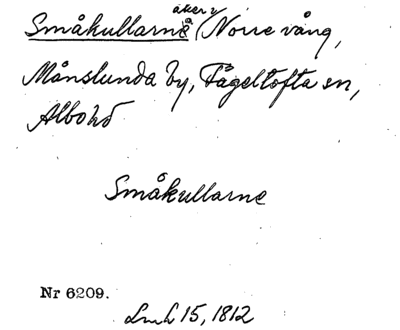 Småkullarne åker i Norre vång,
Månslunda by, Fågeltofta sn,
Albo hd
Småkullarne
Nr 6209.
Lmh 15, 1812